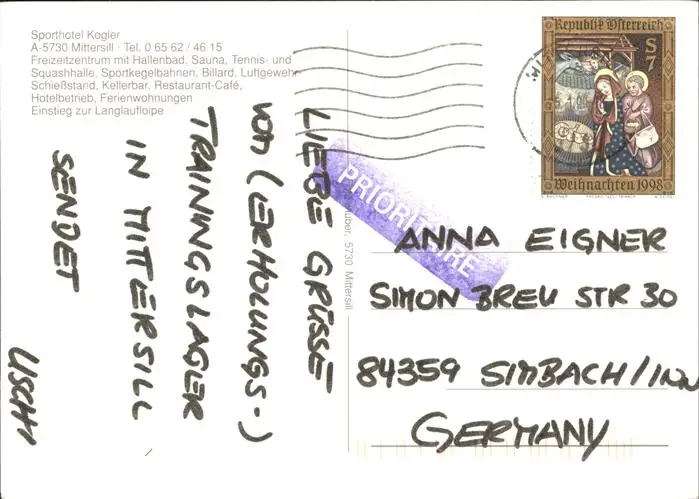 Sporthotel Kogler
A-5730 Mittersill · Tel. 0 65 62 / 46 15
Freizeitzentrum mit Hallenbad, Sauna, Tennis- und
Squashhalle, Sportkegelbahnen, Billard, Luftgewehr-
Schießstand, Kellerbar, Restaurant-Café,
Hotelbetrieb, Ferienwohnungen
Einstieg zur Langlaufloipe
LIEBE GRÜSSE
VOM (ERHOLUNGS-)
TRAININGSLAGER
IN MITTERSILL
SENDET
USCHI
5730 Mittersill
PRIORITAIRE
Republik Österreich
S 7
Weihnachten 1998
ANNA EIGNER
SIMON BREU STR 30
84359 SIMBACH/INN
GERMANY